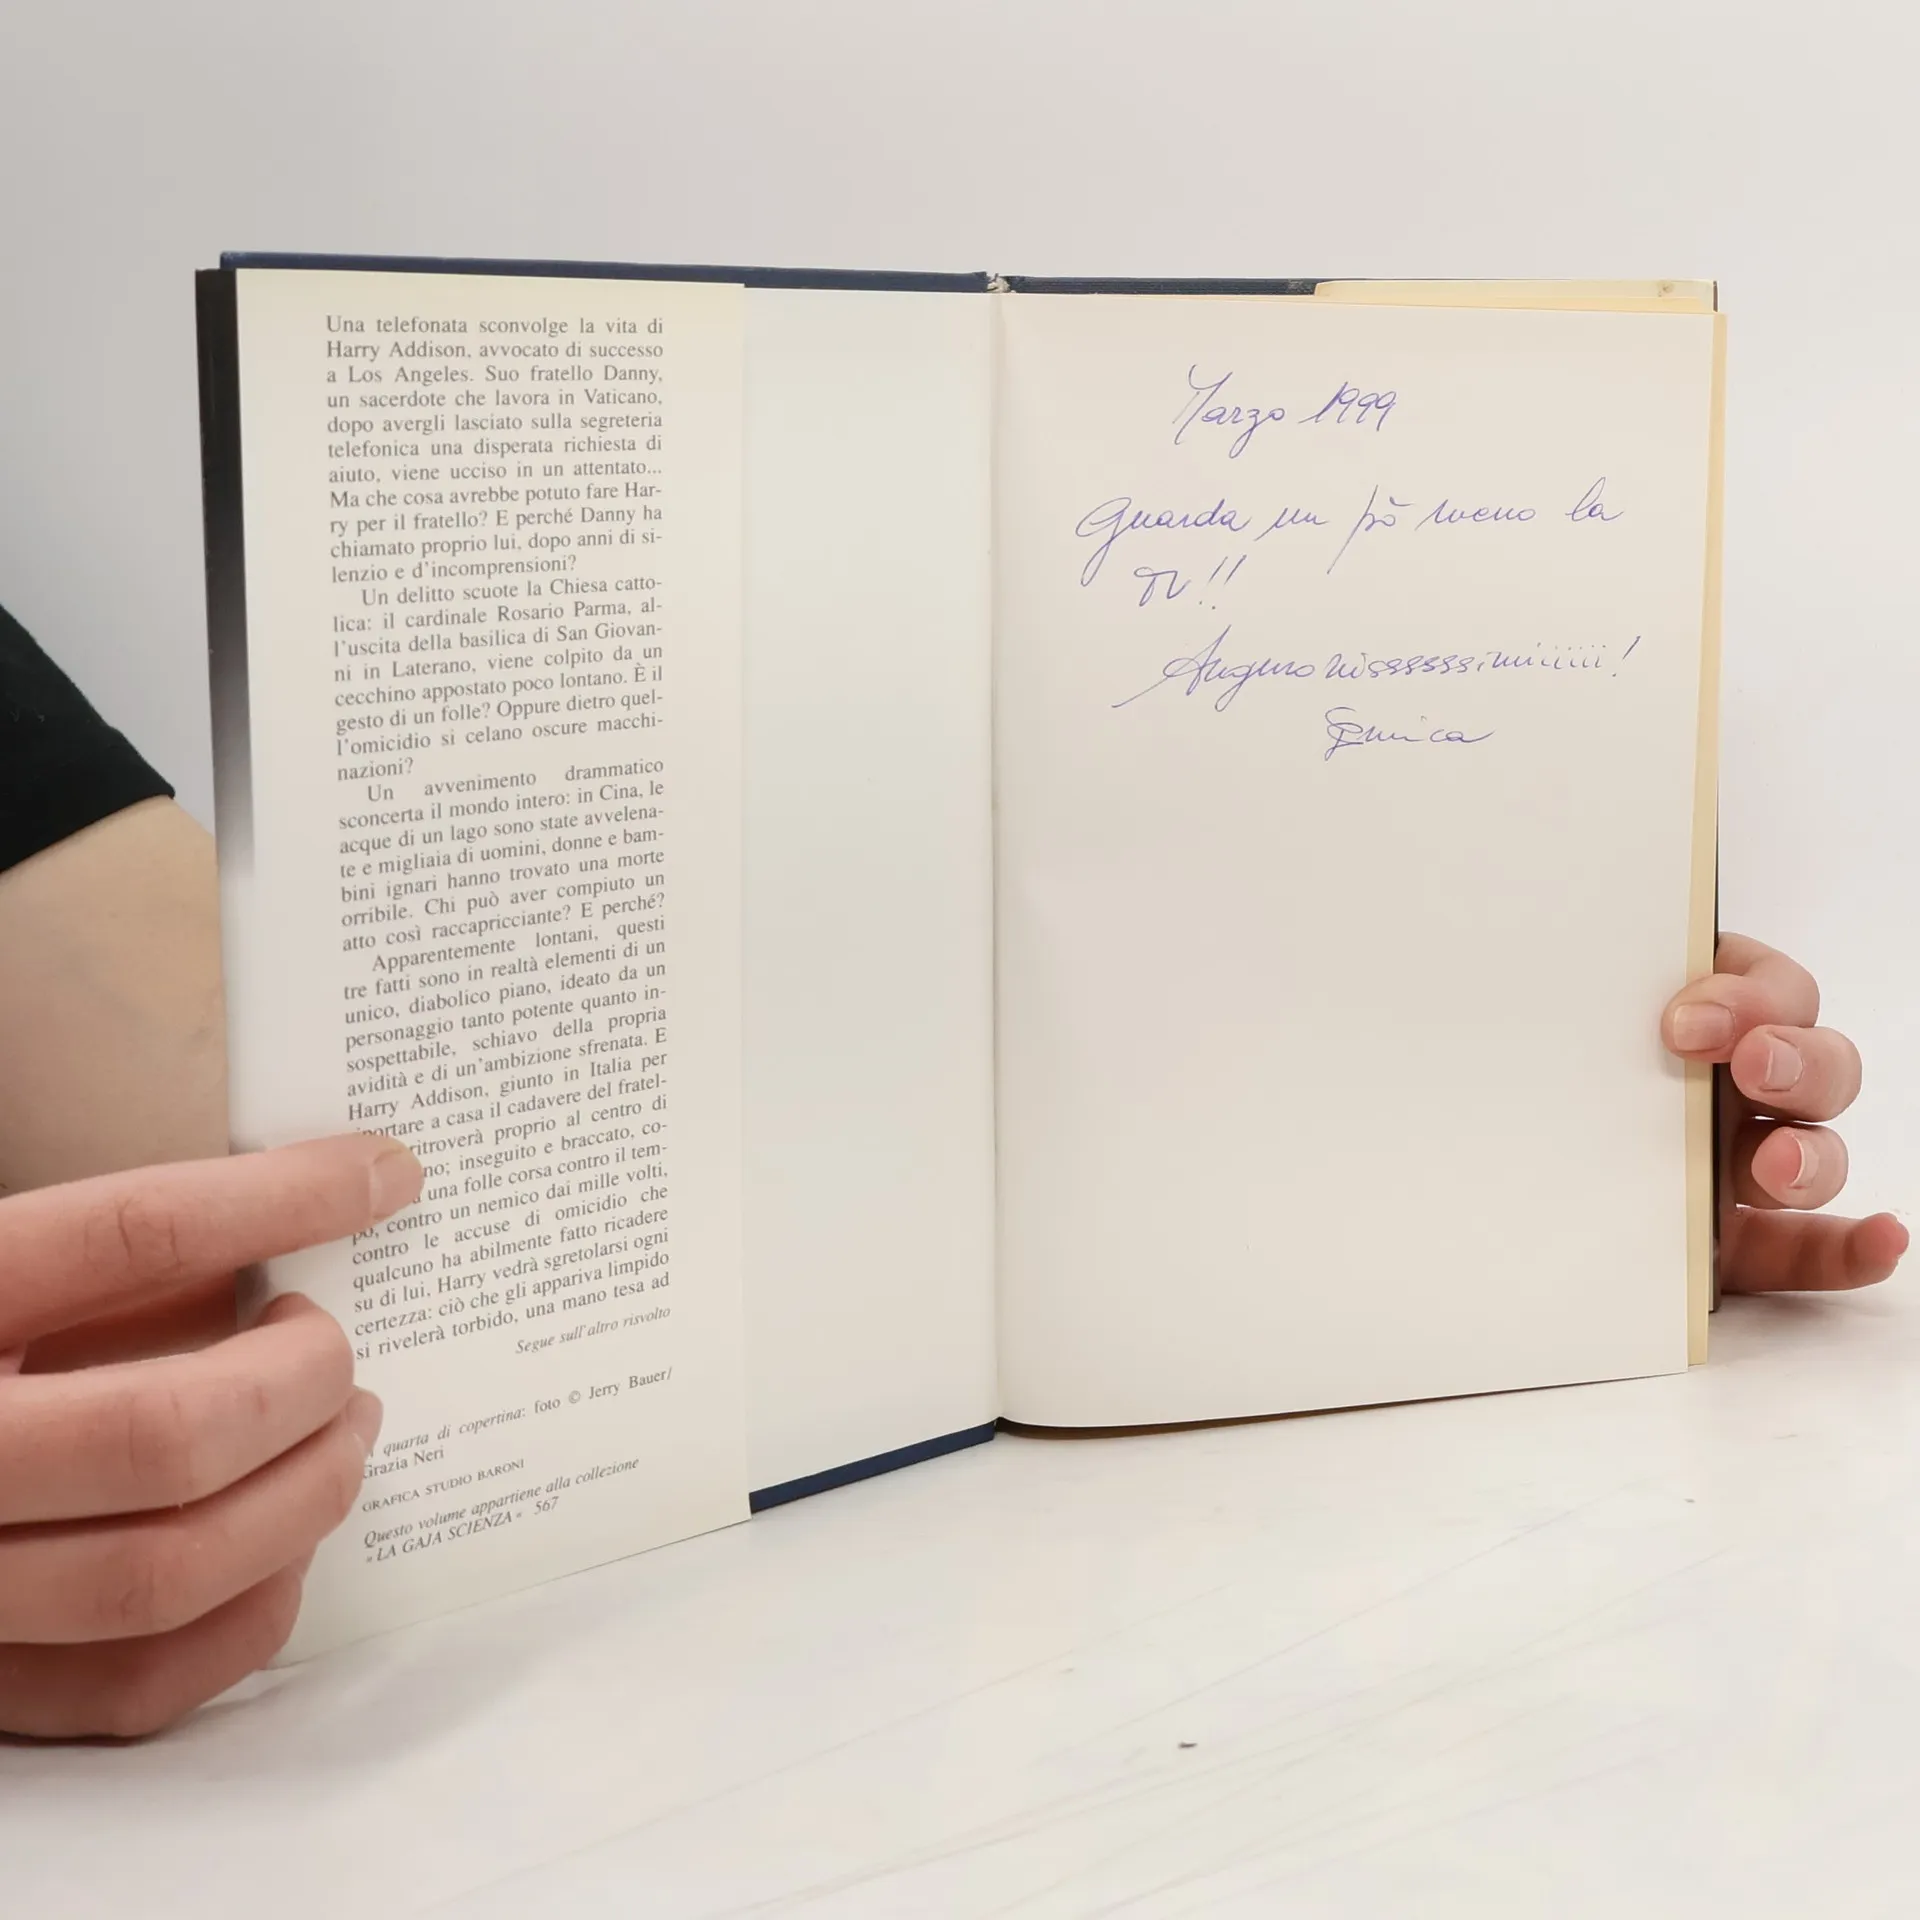 Una telefonata sconvolge la vita di
Harry Addison, avvocato di successo
a Los Angeles. Suo fratello Danny,
un sacerdote che lavora in Vaticano,
dopo avergli lasciato sulla segreteria
telefonica una disperata richiesta di
aiuto, viene ucciso in un attentato...
Ma che cosa avrebbe potuto fare Har-
ry per il fratello? E perché Danny ha
chiamato proprio lui, dopo anni di si-
lenzio e d'incomprensioni?
Un delitto scuote la Chiesa catto-
lica: il cardinale Rosario Parma, al-
l'uscita della basilica di San Giovan-
ni in Laterano, viene colpito da un
cecchino appostato poco lontano. È il
gesto di un folle? Oppure dietro quel-
l'omicidio si celano oscure macchi-
nazioni?
Un avvenimento drammatico
sconcerta il mondo intero: in Cina, le
acque di un lago sono state avvelena-
te e migliaia di uomini, donne e bam-
bini ignari hanno trovato una morte
orribile. Chi può aver compiuto un
atto così raccapricciante? E perché?
Apparentemente lontani, questi
tre fatti sono in realtà elementi di un
unico, diabolico piano, ideato da un
personaggio tanto potente quanto in-
sospettabile, schiavo della propria
avidità e di un'ambizione sfrenata. E
Harry Addison, giunto in Italia per
portare a casa il cadavere del fratel-
ritroverà proprio al centro di
no; inseguito e braccato, co-
una folle corsa contro il tem-
po, contro un nemico dai mille volti,
contro le accuse di omicidio che
qualcuno ha abilmente fatto ricadere
su di lui, Harry vedrà sgretolarsi ogni
certezza: ciò che gli appariva limpido
si rivelerà torbido, una mano tesa ad
Segue sull'altro risvolto
quarta di copertina: foto © Jerry Bauer/
Grazia Neri
GRAFICA STUDIO BARONI
Questo volume appartiene alla collezione
«LA GAJA SCIENZA» 567
Marzo 1999
Guarda un pò meno la
TV!!
Auguronissssssimiiiiii!
Enrica